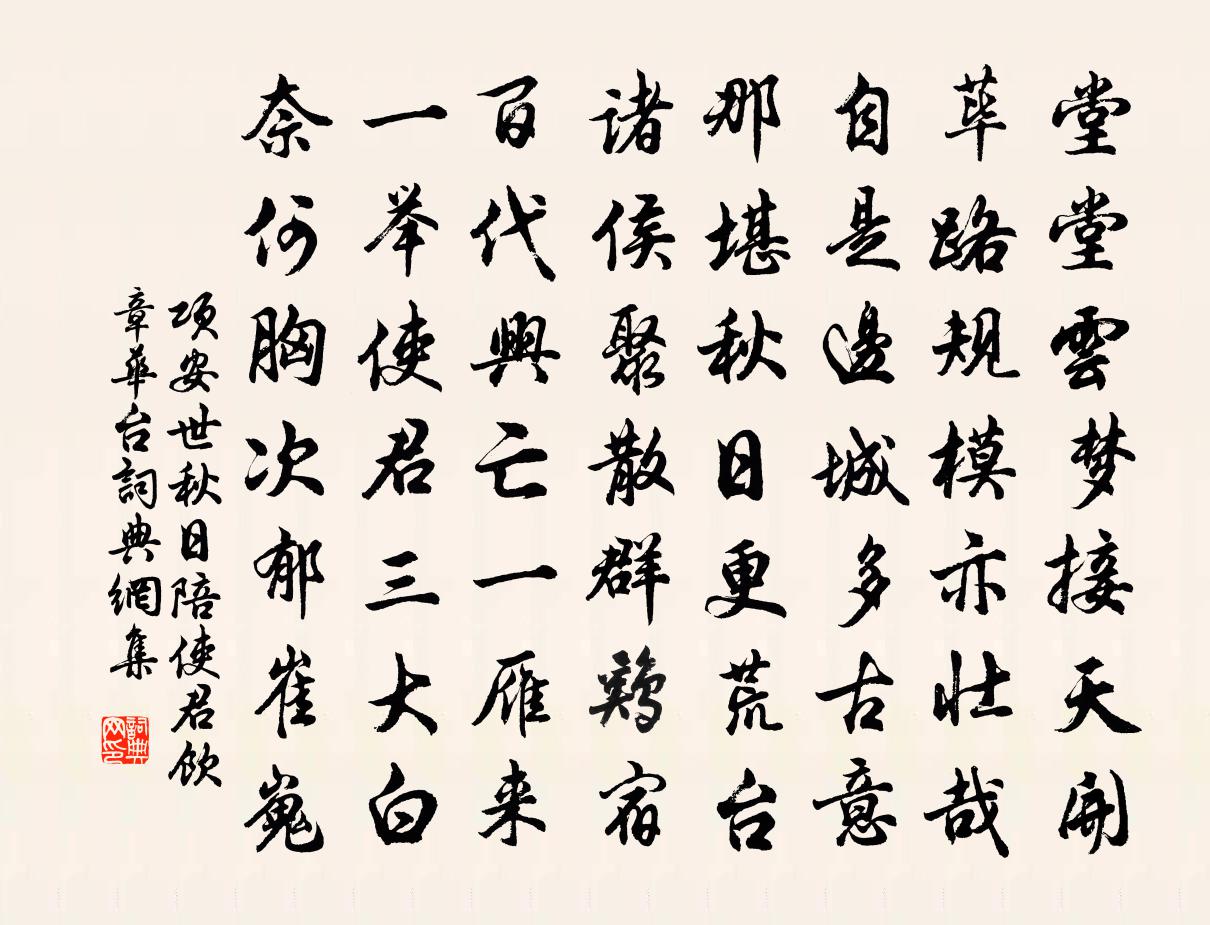 堂堂雲梦接天開
荜路规模亦壮哉
自是邊城多古意
那堪秋日更荒台
诸侯聚散群鷄宿
百代興亡一雁来
一举使君三大白
奈何胸次郁崔嵬
项安世秋日陪使君飲
章華台詞典網集
詞典网印